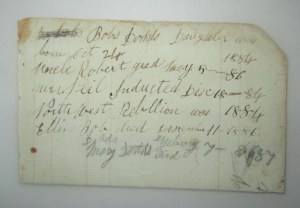 Bobs Dodds Daughter was
born Oct 24 1884
Uncle Robert died May 9 — 86
Mr Neil Inducted Dec 18 — 84
North West Rebellion was 1884
Ellis Bob died 11 - 1886
Mary Dodds died 7 — 1887